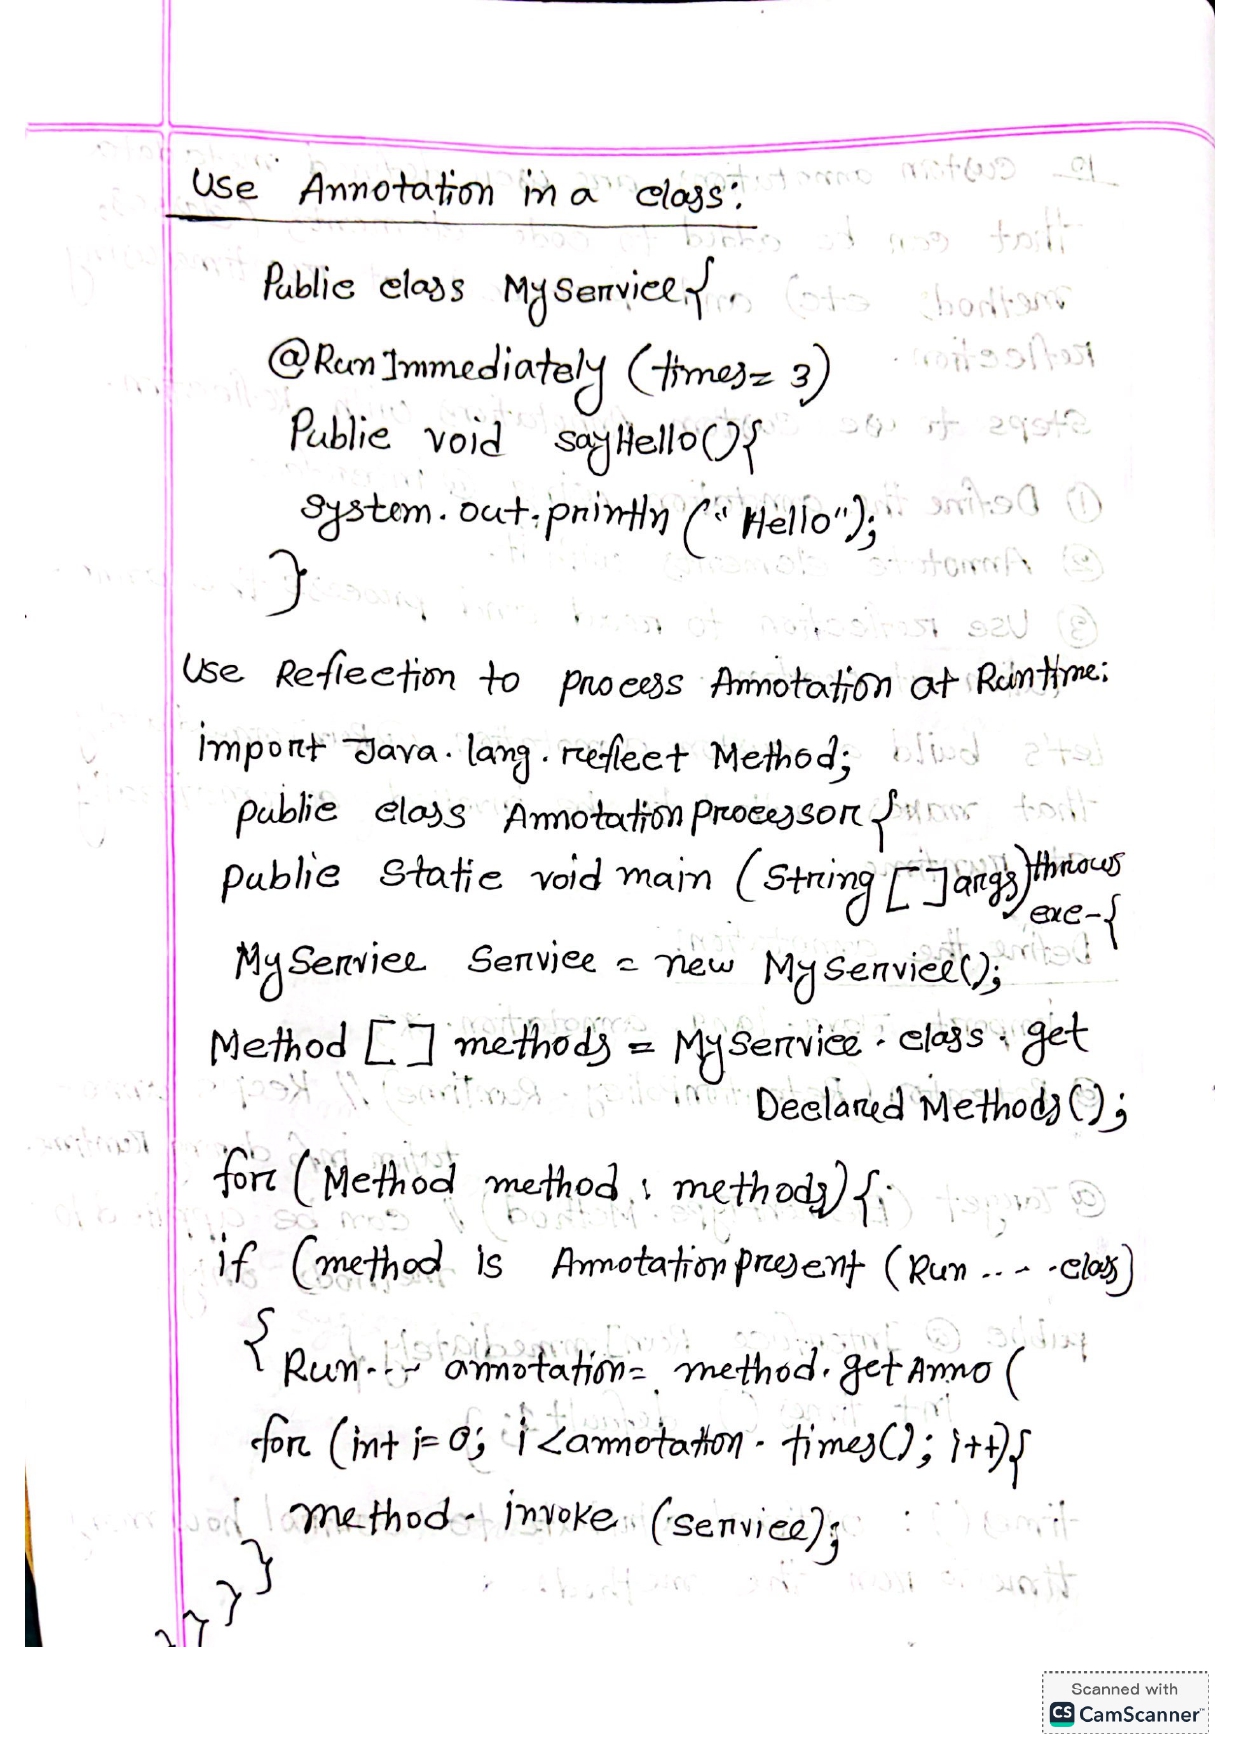 Use Annotation in a class:
Public class MyService{
@RunImmediately (times= 3)
Public void sayHello(){
system.out.println ("Hello");
}
Use Reflection to process Annotation at Runtime:
import Java.lang.reflect Method;
public class AnnotationProcessor{
public static void main (String []args) throws
exe-{
MyService Service = new MyService();
Method [] methods = MyService.class.get
Declared Methods();
for (Method method : methods){
if (method is Annotationpresent (Run .. - - .class)
{
Run--- annotation= method.getAnno (
for (int i=0; i <annotation. times(); i++){
method. invoke (service);
}
}
}
}
Scanned with
CS CamScanner